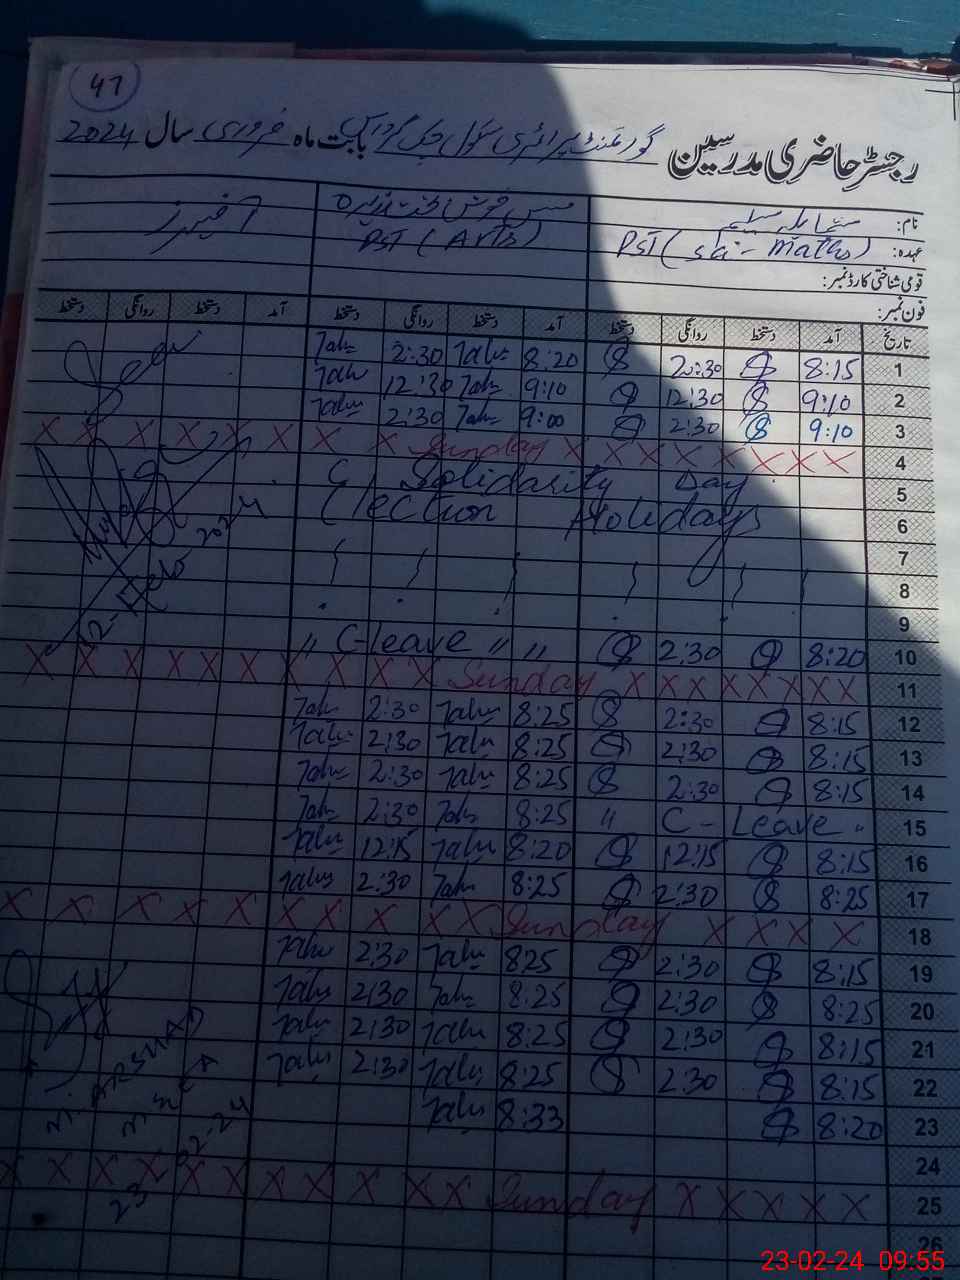 47
رجسٹر حاضری مدرسین گورنمنٹ پرائمری سکول چک بابت ماہ فروری سال 2024
نام: مس خوش بخت آفیسرز
عہدہ: PST ( Sci - Maths ) PST ( Arts )
قومی شناختی کارڈ نمبر:
فون نمبر:
تاریخ آمد دستخط روانگی دستخط آمد دستخط روانگی دستخط آمد دستخط روانگی دستخط
1 8:15 2:30 8:20 2:30
2 9:10 12:30 9:10 12:30
3 9:10 2:30 9:00 2:30
4 X X X X X X X Sunday X X X X X X X X
5 Solidarity Day
6 Election Holidays
7
8
9
10 8:20 2:30 " C-leave " "
11 X X X X X X X Sunday X X X X X X X X X
12 8:15 2:30 8:25 2:30
13 8:15 2:30 8:25 2:30
14 8:15 2:30 8:25 2:30
15 " C - Leave " 8:25 2:30
16 8:15 12:15 8:20 12:15
17 8:25 2:30 8:25 2:30
18 X X X X Sunday X X X X X X X X X X
19 8:15 2:30 825 2:30
20 8:25 2:30 8:25 2:30
21 8:15 2:30 8:25 2:30
22 8:15 2:30 8:25 2:30
23 8:20 8:33
24
25 X X X X X Sunday X X X X X X X X X X
26
12-Feb 2024
M. ARSHAD
M E A
23-02-24
23-02-24 09:55